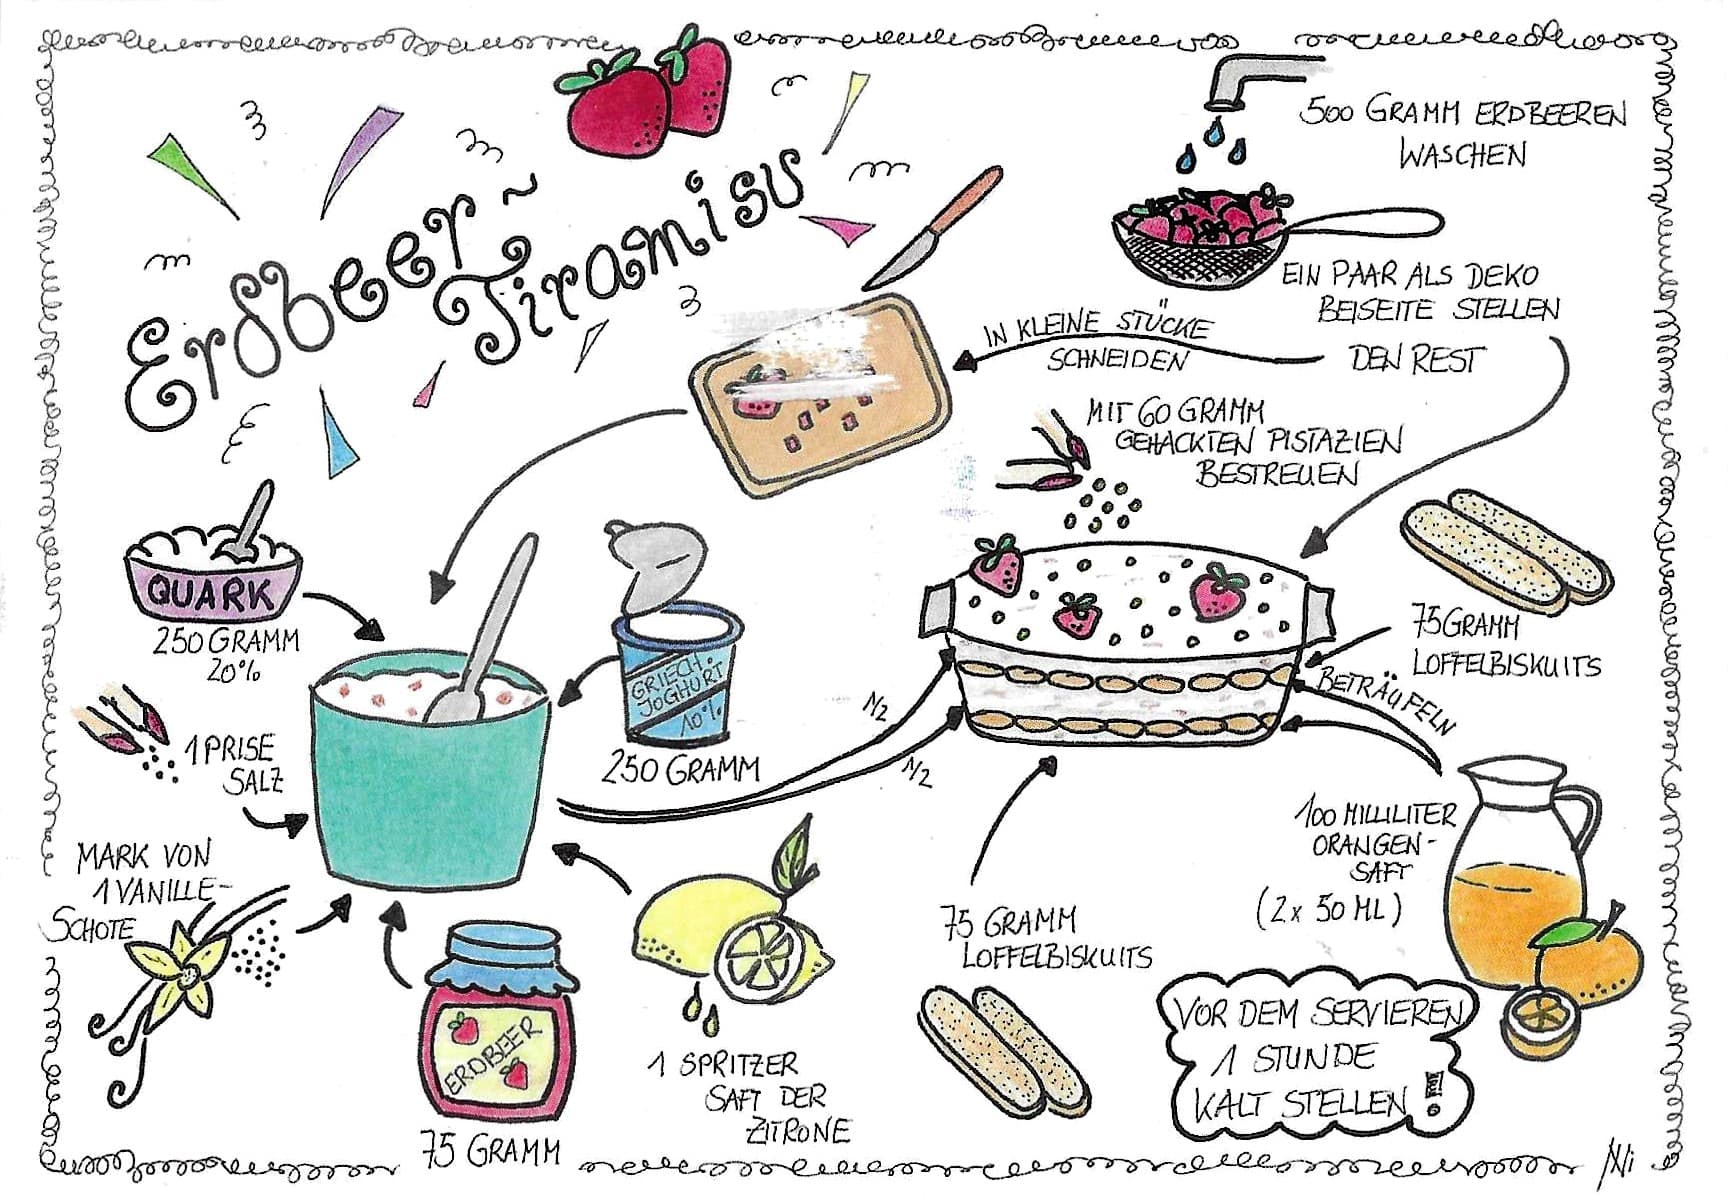 Erdbeer~
Tiramisu
500 GRAMM ERDBEEREN
WASCHEN
EIN PAAR ALS DEKO
BEISEITE STELLEN
DEN REST
IN KLEINE STÜCKE
SCHNEIDEN
MIT 60 GRAMM
GEHACKTEN PISTAZIEN
BESTREUEN
QUARK
250 GRAMM
20%
GRIECH.
JOGHURT
10%
250 GRAMM
1 PRISE
SALZ
MARK VON
1 VANILLE-
SCHOTE
ERDBEER
75 GRAMM
1 SPRITZER
SAFT DER
ZITRONE
1/2
1/2
75 GRAMM
LOFFELBISKUITS
BETRÄUFELN
75 GRAMM
LOFFELBISKUITS
100 MILLILITER
ORANGEN-
SAFT
(2x 50 ML)
VOR DEM SERVIEREN
1 STUNDE
KALT STELLEN!